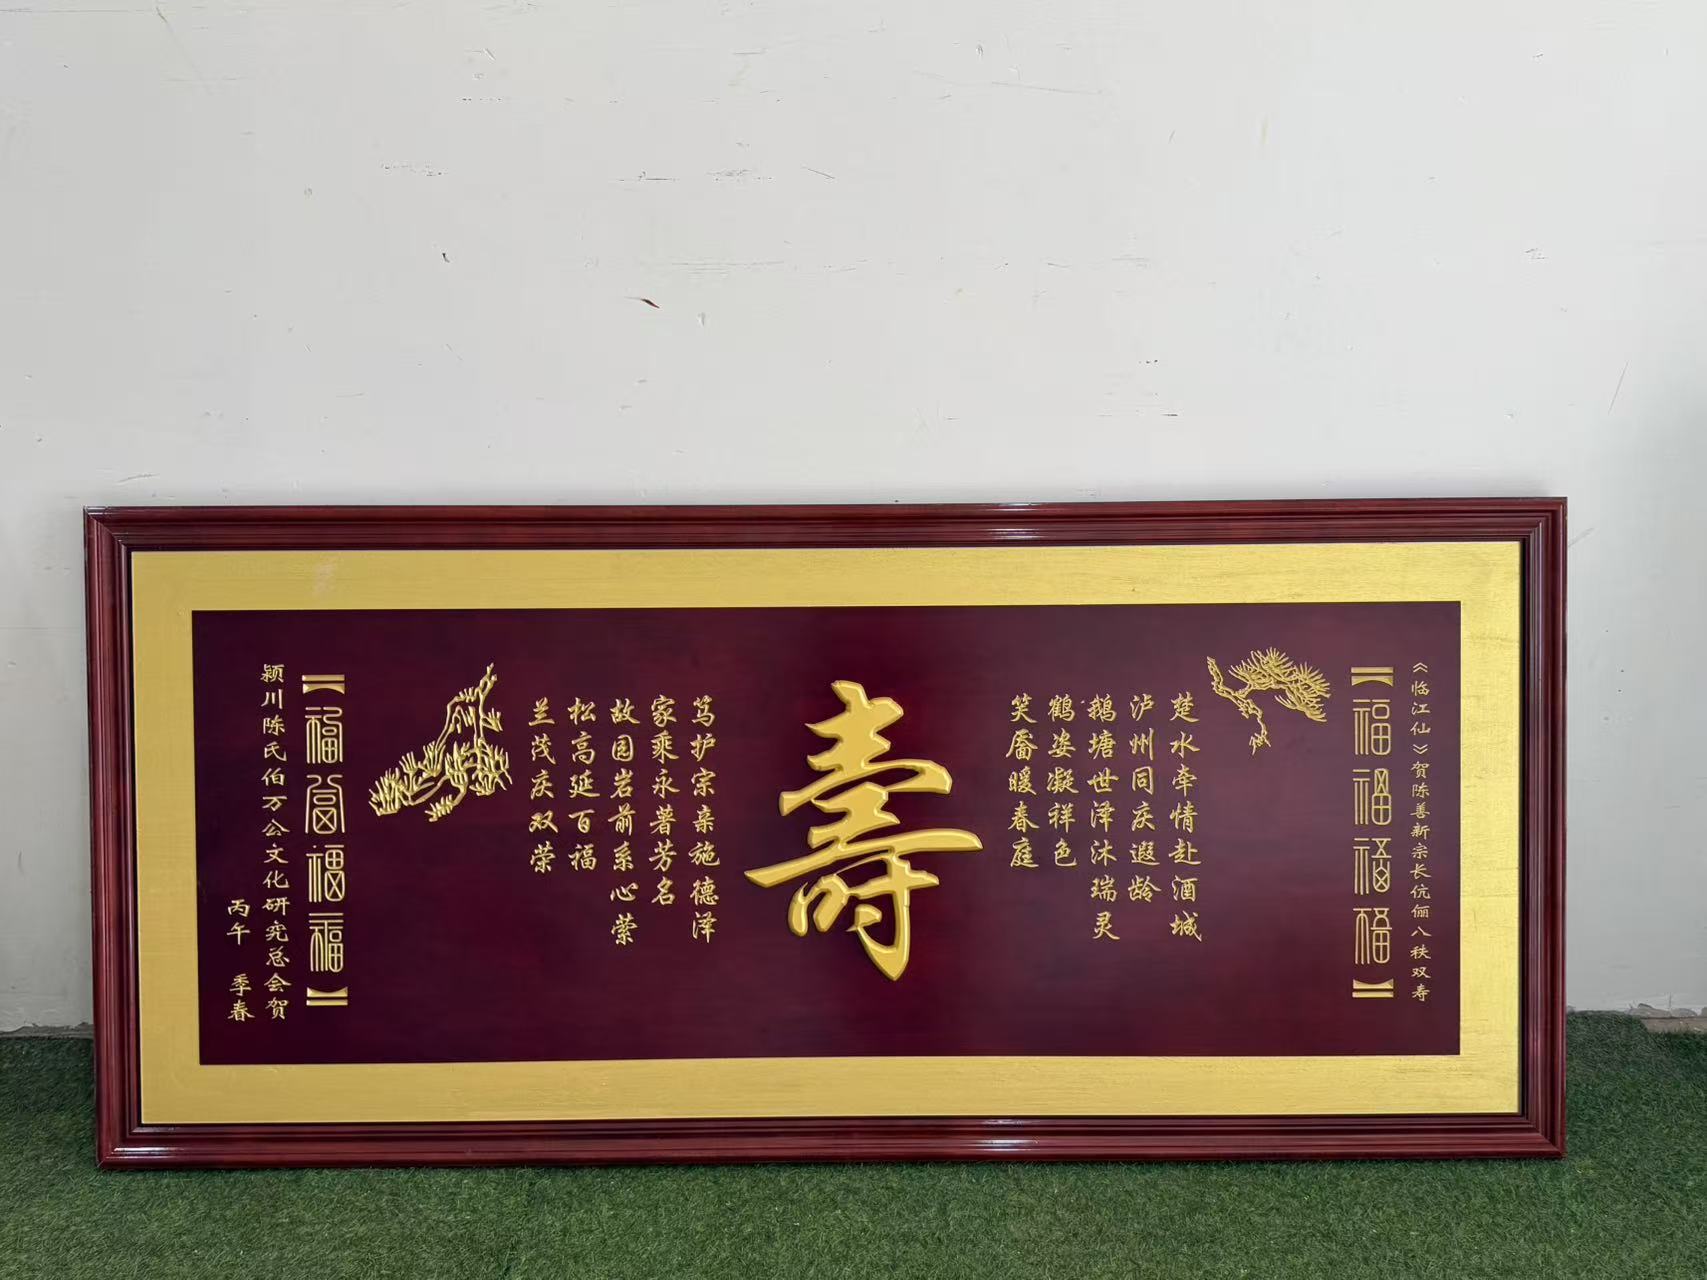 《临江仙》贺陈善新宗长伉俪八秩双寿
福福福福
楚水牵情赴酒城
泸州同庆遐龄
鹅塘世泽沐瑞灵
鹤姿凝祥色
笑靥暖春庭
寿
笃护宗亲施德泽
家乘永著芳名
故园岩前系心萦
松高延百福
兰茂庆双荣
福福福福
颍川陈氏伯万公文化研究总会贺
丙午 季春